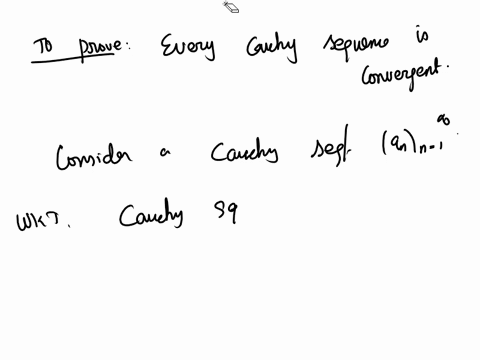 To prove: Every Cauchy sequence is
Convergent.
Consider a Cauchy seq. (aₙ)ₙ₌₁^∞.
WKT. Cauchy sq